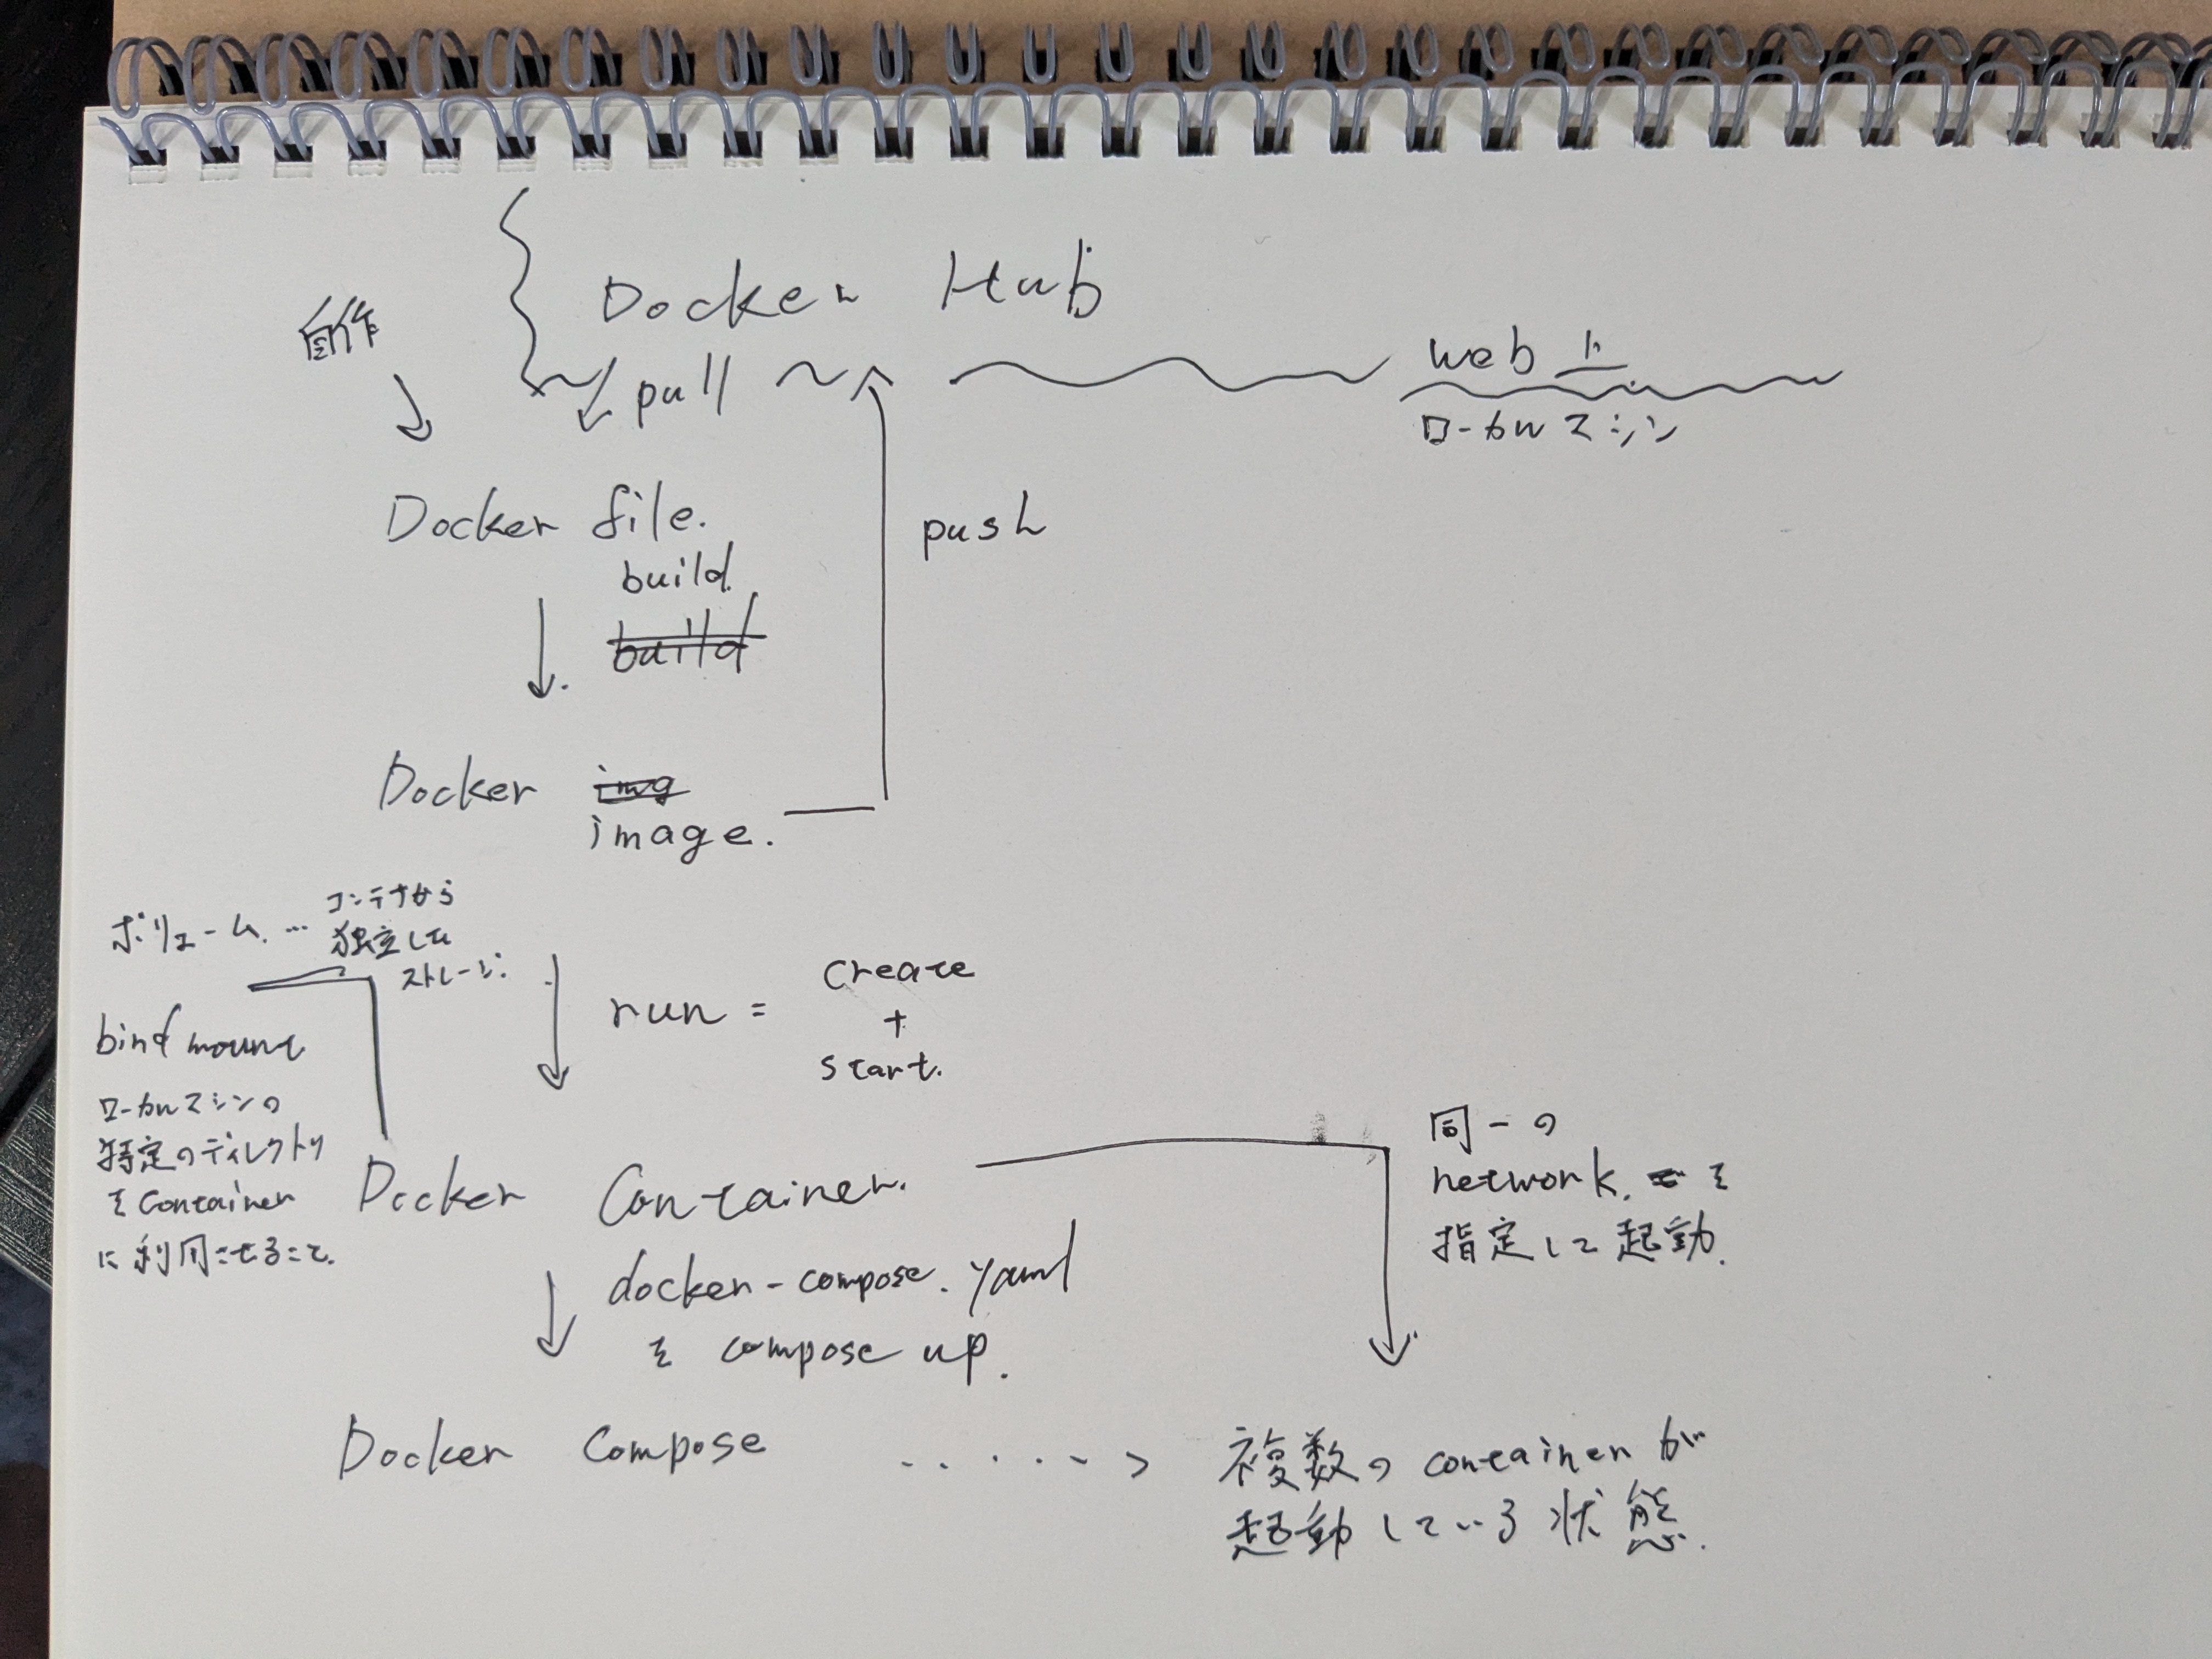 Docker Hub
自作
web上
pull
ローカルマシン
Docker file.
push
build
build
Docker img
image.
ボリューム. … コンテナから
独立した
ストレージ.
run = create
+
start.
bind mount
ローカルマシンの
特定のディレクトリ
を container
に利用させること.
Docker Container.
同一の
network. を
指定して起動.
docker-compose.yaml
を compose up.
Docker Compose
複数の container が
起動している状態.